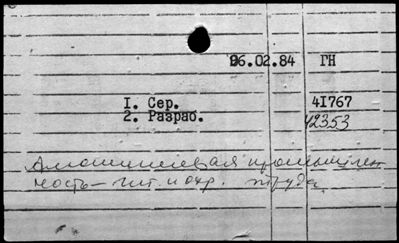 06.02.84 ГН
1. Сер. 41767
2. Разраб. 42353
Алюминиевая промышлен
ность – гиг. и охр. труда